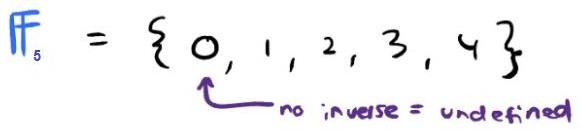 𝔽₅ = { 0, 1, 2, 3, 4 }
no inverse = undefined